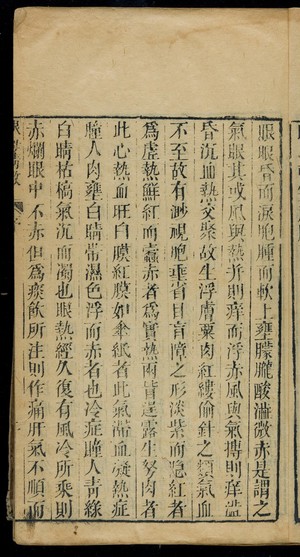 眼眼昏而淚胞腫而軟上壅朦朧酸澁微赤是謂之
氣眼其或風與熱幷則痒而浮赤風與氣搏則痒澁
昏沉血熱交聚故生浮膚粟肉紅縷偷針之類氣血
不至故有渺視胞垂雀目盲障之形淡紫而隱紅者
為虛熱鮮紅而畫赤者為實熱兩眥呈露生努肉者
此心熱血旺白膜紅膜如傘紙者此氣滯血凝熱症
瞳人肉壅白睛帶濕色浮而赤者也冷症瞳人青綠
白睛枯槁氣沉而濁也眼熱經久復有風冷所乘則
赤爛眼中不赤但為痰飲所注則作痛肝氣不順而